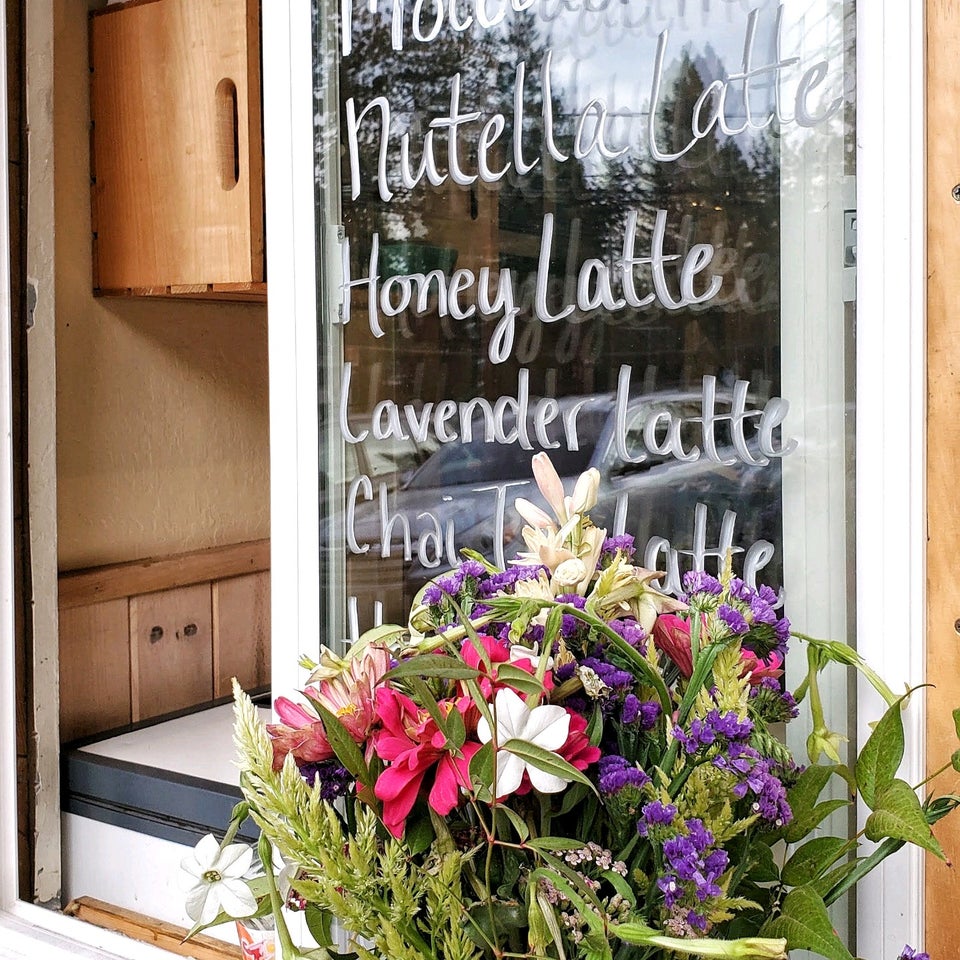 Nutella Latte
Honey Latte
Lavender Latte
Chai Latte